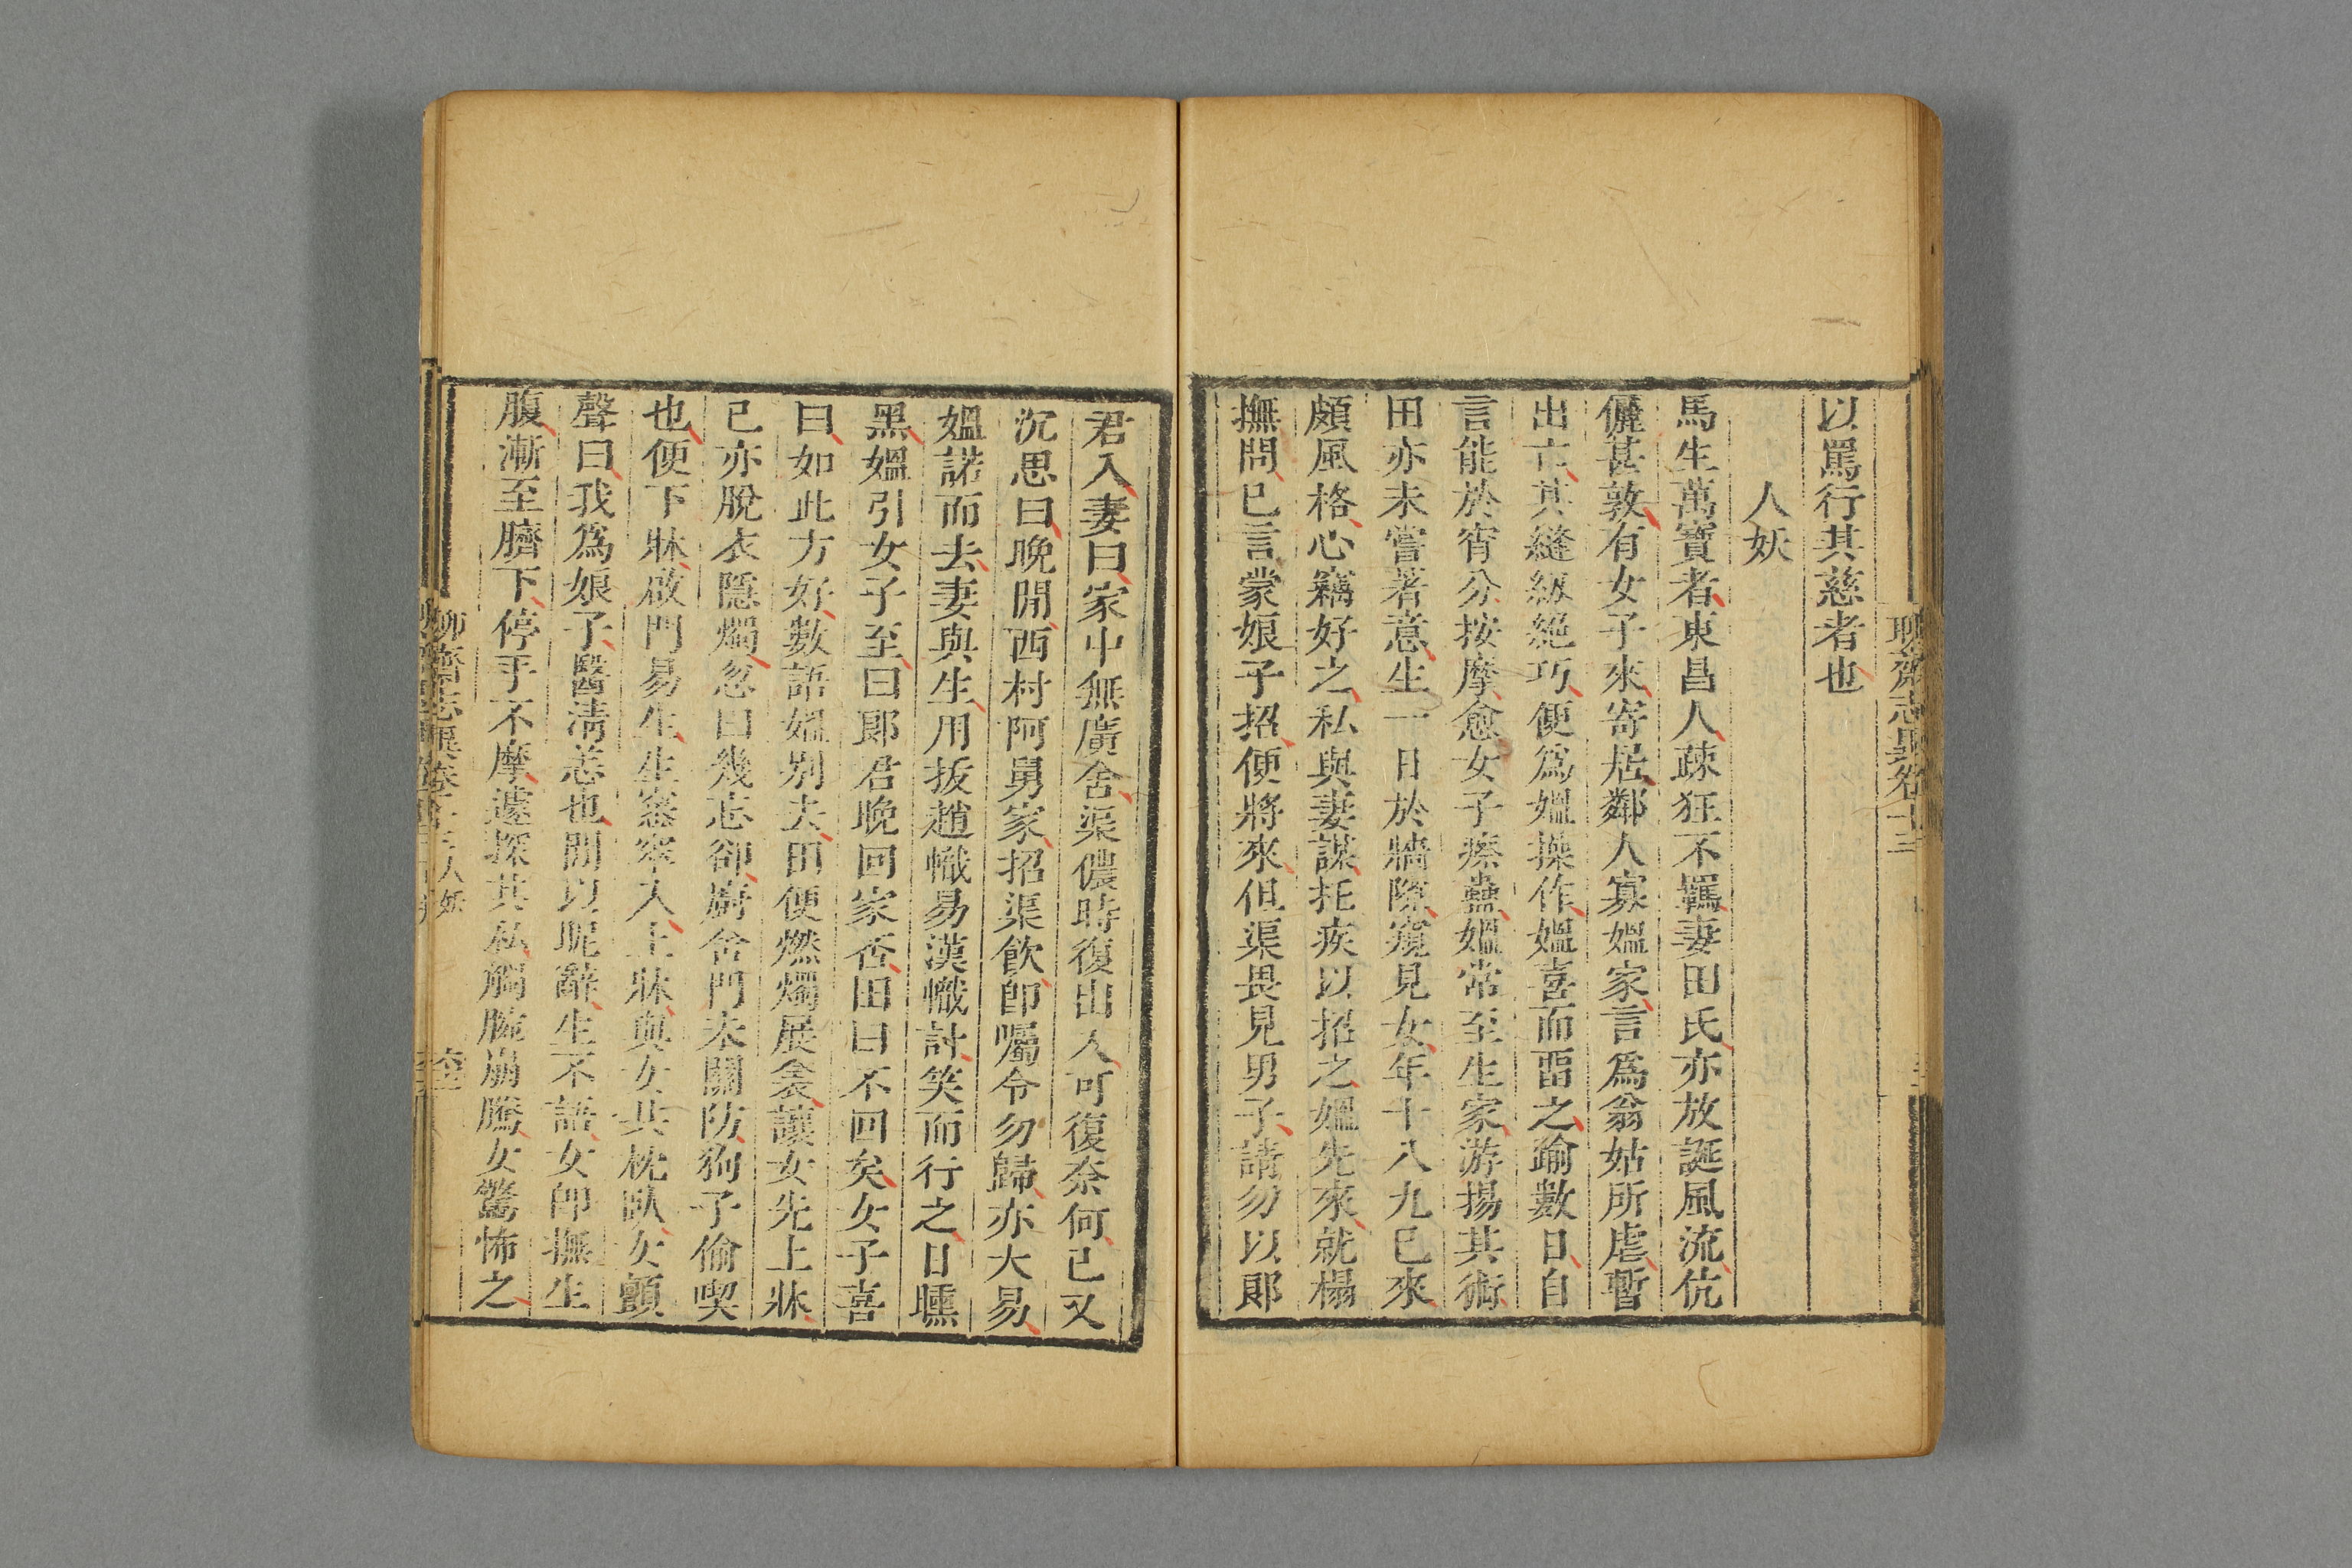 聊齋志異卷十三
以罵行其慈者也
人妖
馬生萬寶者東昌人疎狂不羈妻田氏亦放誕風流伉
儷甚敦有女子來寄居鄰人寡媼家言爲翁姑所虐暫
出亡其縫紉絕巧便爲媼操作媼喜而畱之踰數日自
言能於宵分按摩愈女子瘵蠱媼常至生家游揚其術
田亦未嘗著意生一日於牆隙窺見女年十八九已來
頗風格心竊好之私與妻謀托疾以招之媼先來就榻
撫問已言蒙娘子招便將來但渠畏見男子請勿以郞
君入妻曰家中無廣舍渠儂時復出入可復奈何已又
沉思曰晚間西村阿舅家招渠飲卽囑令勿歸亦大易
媼諾而去妻與生用拔趙幟易漢幟計笑而行之日曛
黑媼引女子至曰郞君晚回家否田曰不回矣女子喜
曰如此方好數語媼別去田便燃燭展衾讓女先上牀
已亦脫衣隱燭忽曰幾忘卻廚舍門未關防狗子偷喫
也便下牀啟門易生生窸窣入上牀與女共枕臥女顫
聲曰我爲娘子醫淸恙也間以昵辭生不語女卽撫生
腹漸至臍下停手不摩遽探其私觸腕崩騰女驚怖之
聊齋志異卷十三人妖